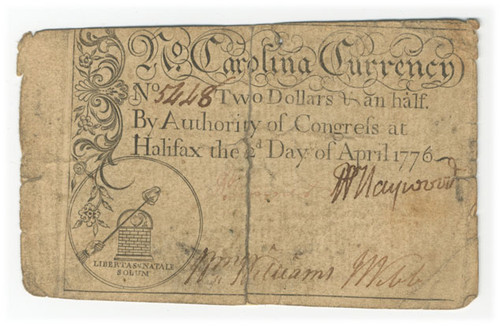 No. Carolina Currency
No 5448 Two Dollars & an half.
By Authority of Congreſs at
Halifax the 2d Day of April 1776
W Haywood
LIBERTAS & NATALE
SOLUM
Wm Williams J Webb